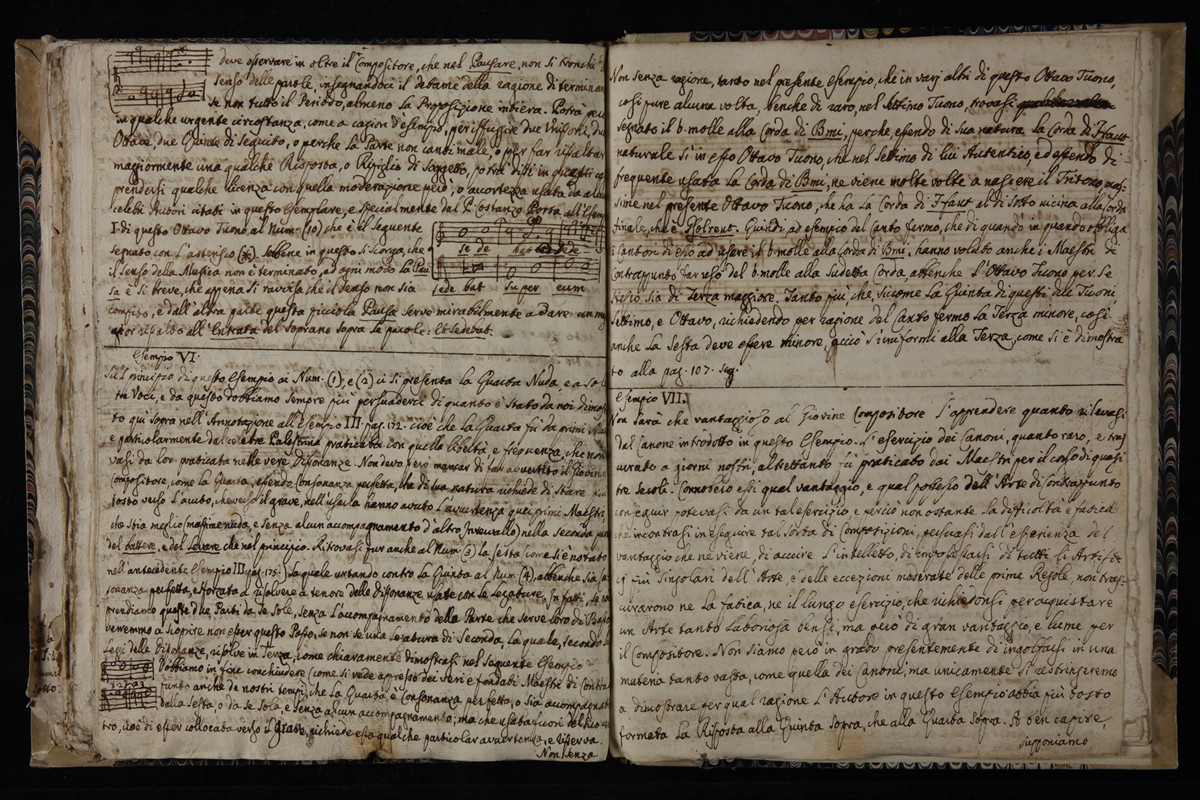 deve osservare in oltre il Compositore, che nel Pausare, non si tronchi il
senso delle parole, insegnandoci il dettame della ragione di terminare
se non tutto il Periodo, almeno la Proposizione intiera. Potrà però
in qualche urgente circostanza, come a cagion d'esempio, per isfuggire due Unissoni, due
Ottave, due Quinte di seguito, o perche la Parte non canti male, o per far risaltar
maggiormente una qualche Risposta, o Ripiglio di Soggetto, potrà dissi in questi casi
prendersi qualche licenza con quella moderazione però, o accortezza usata da alcuni
celebri Autori citati in questo Esemplare, e specialmente dal P. Costanzo Porta all'Esempio
I. di questo Ottavo Tuono al Num. (10) che è il seguente
segnato con l'asterisco (*). Sebbene in questo si scorga, che
il senso della Musica non è terminato, ad ogni modo la Pau
sa è si breve, che appena si ravvisa che il senso non sia
sede bat sede
sede bat super eum
compito, e dall'altra parte questa picciola Pausa serve mirabilmente a dare un mag
gior risalto all'Entrata del Soprano sopra le parole: Et sedebat.
Esempio VI.
Sul principio di questo Esempio ai Num. (1), e (2) ci si presenta la Quarta Nuda, e a So
tre Voci, e da questo dobbiamo sempre più persuaderci di quanto è stato da noi dimos
to qui sopra nell'Annotazione all'Esempio III. pag. 172. cioè che la Quarta fù da primi M
e particolarmente dal celebre Palestrina praticata con quella libertà, e frequenza, che non
vasi da lor praticata nelle vere Dissonanze. Non devo però mancar di far avvertito il Giovine
Compositore, come la Quarta, essendo Consonanza perfetta, ha di sua natura richiede di stare piut
tosto verso l'acuto, che verso il grave, nell'usarla hanno avuto l'avvertenza quei primi Maestri,
che stia meglio (massime nuda, e senza alcun accompagnamento d'altro Intervallo) nella seconda parte
del battere, e del Levare che nel principio. Ritrovasi pur anche al Num. (3) la Sesta (come si è notato
nell'antecedente Esempio III. pag. 175.) la quale urtando contro la Quinta al Num. (4), abbenche sia con
sonanza perfetta, è forzata a risolvere a tenore delle Dissonanze usate con le Legature. In fatti, se
prendiamo queste due Parti da se sole, senza l'accompagnamento della Parte che serve loro di Base
verremmo a scoprire non esser questo Passo, se non se una Legatura di Seconda, la quale, secondo le
Leggi delle Dissonanze, risolve in Terza, come chiaramente dimostrasi nel seguente Esempio
Dobbiamo in fine conchiudere (come si vede appresso dei Seri e fondati Maestri di Contra
punto anche de nostri tempi, che la Quarta è Consonanza perfetta, o sia accompagnata
dalla Sesta, o da se Sola, e senza alcun accompagnamento; ma che usata fuori del suo cen
tro, cioè di esser collocata verso il Grave, richiede essa qualche particolar avvertenza, e riserva.
Non senza
Non senza ragione, tanto nel presente Esempio, che in varj altri di questo Ottavo Tuono,
così pure alcuna volta, benche di raro, nel Settimo Tuono, trovasi
segnato il b. molle alla Corda di Bmi, perche, essendo di sua natura la Corda di Ffaut
naturale sì in esso Ottavo Tuono, che nel Settimo di lui Autentico, ed essendo di
frequente usata la Corda di Bmi, ne viene molte volte a nascere il Tritono, mas
sime nel presente Ottavo Tuono, che ha la Corda di Ffaut al di sotto vicina alla Corda
finale, che è Gsolreut. Quindi, ad esempio del Canto fermo, che di quando in quando obbliga
i Cantori di esso ad usare il b. molle alla Corda di Bmi, hanno voluto anche i Maestri di
Contrappunto far uso del b. molle alla sudetta Corda abbenche l'Ottavo Tuono per se
stesso sia di Terza maggiore. Tanto più, che siccome la Quinta di questi due Tuoni
Settimo, e Ottavo, richiedendo per ragione del Canto fermo la Terza minore, così
anche la Sesta deve essere minore, acciò s'uniformi alla Terza, come si è dimostra
to alla pag. 107. seg.
Esempio VII.
Non sarà che vantaggioso al Giovine Compositore l'apprendere quanto rilevasi
dal Canone introdotto in questo Esempio. L'esercizio dei Canoni, quanto raro, e tras
curato a giorni nostri, altrettanto fù praticato dai Maestri per il corso di quasi
tre secoli. Connobero essi qual vantaggio, e qual possesso dell'Arte di Contrappunto
conseguir potevasi da un tal esercizio, e perciò non ostante la difficoltà e fatica
che incontrasi in eseguire tal sorta di Composizioni, persuasi dall'esperienza del
vantaggio che ne viene di acuire l'intelletto, di impossessarsi di tutti li Artifi
cj più singolari dell'Arte, e delle eccezioni moderate delle prime Regole, non tras
curarono ne la fatica, ne il lungo esercizio, che richiedonsi per acquistare
un Arte tanto laboriosa bensì, ma però di gran vantaggio, e lume per
il Compositore. Non siamo però in grado presentemente di ingolfarsi in una
materia tanto vasta, come quella dei Canoni, ma unicamente si restringeremo
a dimostrare per qual ragione l'Autore in questo Esempio abbia più tosto
formata la Risposta alla Quinta Sopra, che alla Quarta sopra. A ben capire,
supponiamo